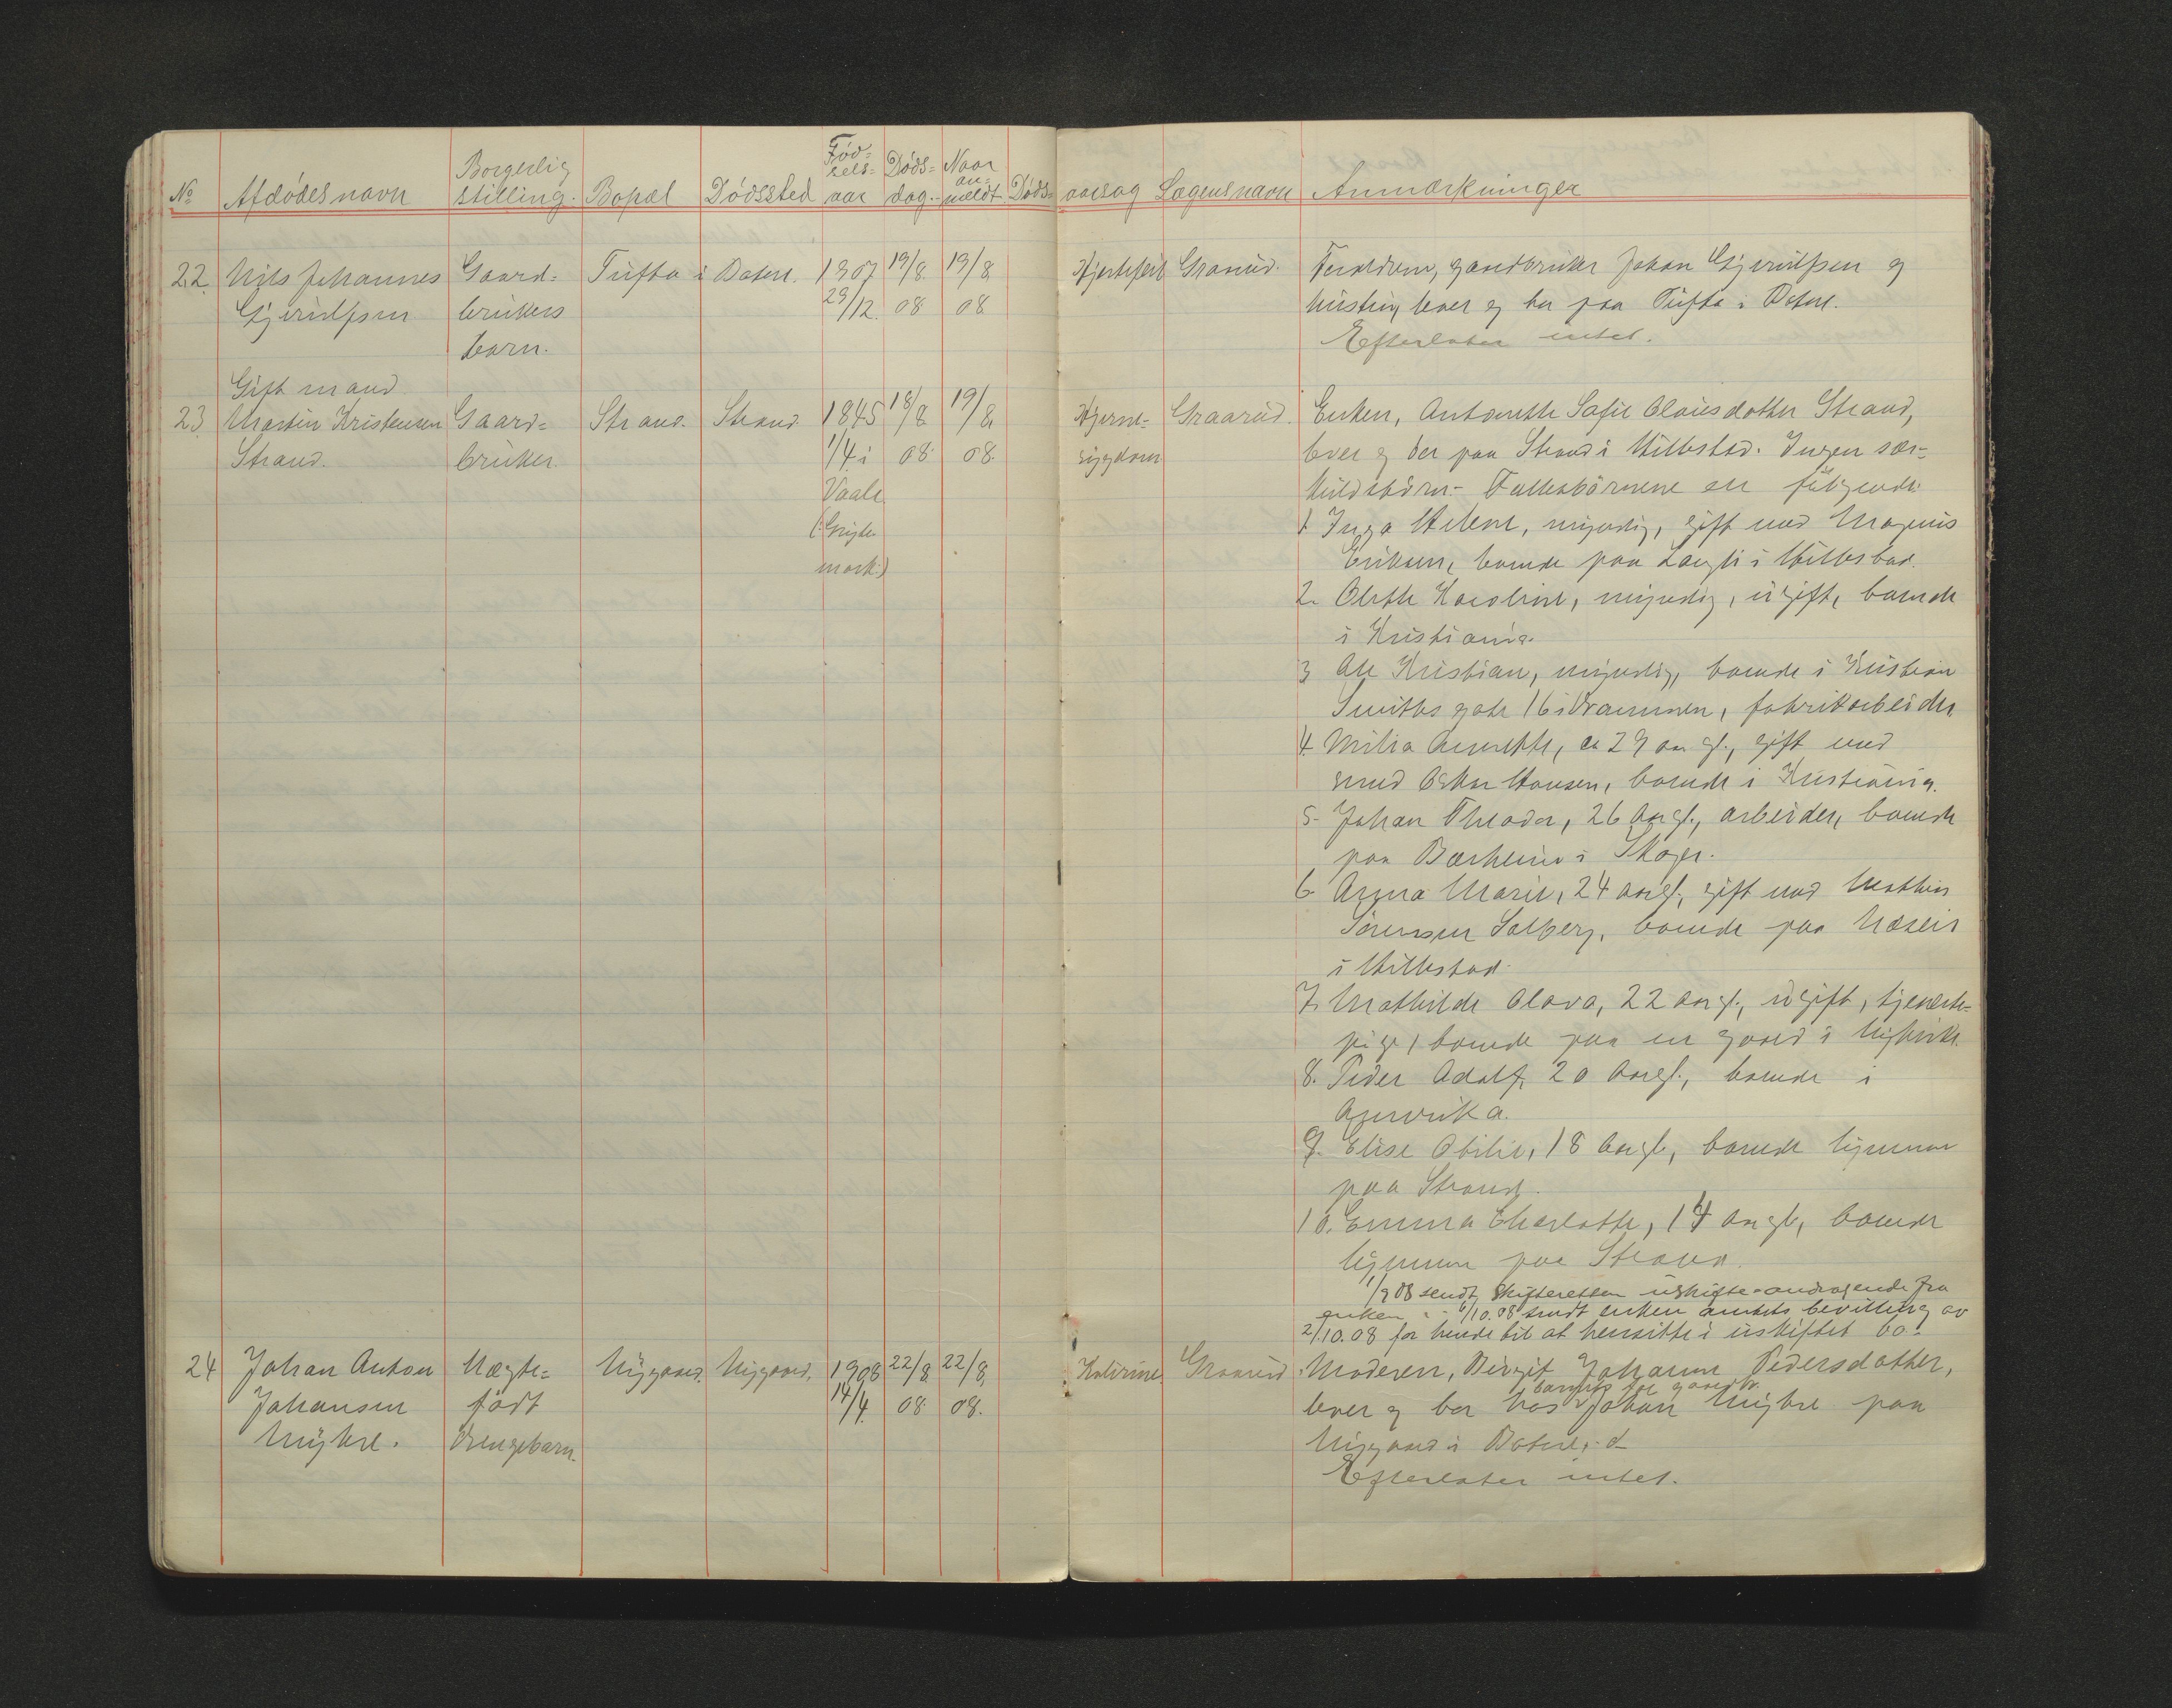 Nº Afdødes navn Borgerlig stilling. Bopæl Dødssted Fød=sels=aar Døds=dag. Naar an=meldt Døds=aarsag Lægens navn Anmærkninger
22. Nils Johannes Gaard= Tufta i Botne. 1907 19/8 19/8 Hjertefeil Graarud. Forældrene, gaardbruker Johan Gjerulfsen og
Gjerulfsen brukers 29/12. 08 08 hustru lever og bor paa Tufta i Botne.
barn. Efterlater intet.
Gift mand
23. Martin Kristensen Gaard= Strand. Strand. 1845 18/8 19/8 Hjerne= Graarud. Enken, Antonette Sofie Olausdatter Strand,
Strand. bruker. 1/4 i 08 08. sygdom lever og bor paa Strand i Hillestad. Ingen sær=
Vaale kuldsbørn. Fællesbørnene er følgende:
1. Inga Helene, myndig, gift med Magnus
mark.) Eriksen, boende paa Langli i Hillestad.
2. Olette Karoline, myndig, ugift, boende
i Kristiania.
3 Ole Kristian, myndig, boende i Kristian
Smiths gate 16 i Drammen, fabrikarbeider.
4. Milia Annette, ca 29 aar gl., gift med
med Oskar Hansen, boende i Kristiania.
5. Johan Theodor, 26 aar gl., arbeider, boende
paa i Skoger.
6. Anna Marie, 24 aar gl., gift med Mathias
Sørensen Solberg, boende paa
i Hillestad.
7. Mathilde Olava, 22 aar gl., ugift, tjeneste=
pige, boende paa en gaard i Nykirke.
8. Peder Adolf, 20 aar gl., boende i
Amerika.
9. Elise Otilie, 18 aar gl., boende hjemme
paa Strand.
10. Emma Charlotte, 14 aar gl., boende
hjemme paa Strand.
1/9 08 sendt skifteretten uskifte-andragende fra
enken. 6/10.08 sendt enken amtets bevilling av
2/10.08 for hende til at hensitte i uskiftet bo.
24 Johan Anton Uægte= Nygaard. Nygaard. 1908 22/8 22/8 Graarud. Moderen, Birgit Johanne Pedersdatter,
Johansen født 14/4. 08 08. lever og bor hos Johan Nykre paa
Nykre. drengebarn. Nygaard i Botne.
Efterlater intet.